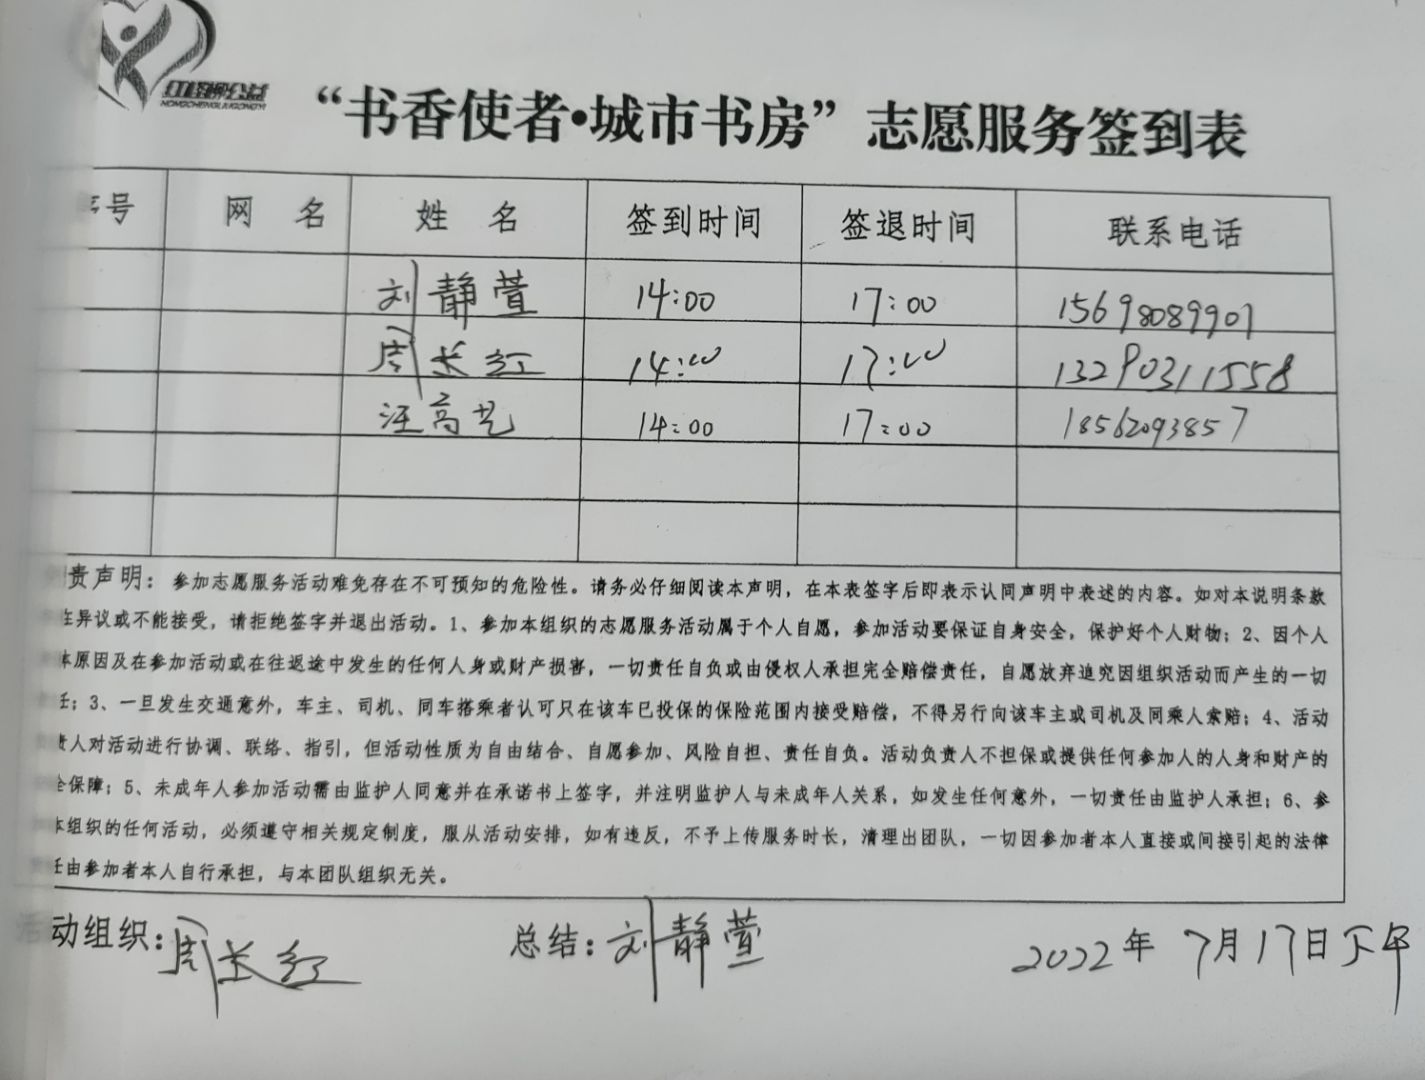 公益
“书香使者•城市书房”志愿服务签到表
序号 网 名 姓 名 签到时间 签退时间 联系电话
刘静萱 14:00 17:00 15698089901
周长红 14:00 17:00 13290311558
汪高艺 14:00 17:00 18562093857
责声明：参加志愿服务活动难免存在不可预知的危险性。请务必仔细阅读本声明，在本表签字后即表示认同声明中表述的内容。如对本说明条款
在异议或不能接受，请拒绝签字并退出活动。1、参加本组织的志愿服务活动属于个人自愿，参加活动要保证自身安全，保护好个人财物；2、因个人
体原因及在参加活动或在往返途中发生的任何人身或财产损害，一切责任自负或由侵权人承担完全赔偿责任，自愿放弃追究因组织活动而产生的一切
任；3、一旦发生交通意外，车主、司机、同车搭乘者认可只在该车已投保的保险范围内接受赔偿，不得另行向该车主或司机及同乘人索赔；4、活动
责人对活动进行协调、联络、指引，但活动性质为自由结合、自愿参加、风险自担、责任自负。活动负责人不担保或提供任何参加人的人身和财产的
全保障；5、未成年人参加活动需由监护人同意并在承诺书上签字，并注明监护人与未成年人关系，如发生任何意外，一切责任由监护人承担；6、参
本组织的任何活动，必须遵守相关规定制度，服从活动安排，如有违反，不予上传服务时长，清理出团队，一切因参加者本人直接或间接引起的法律
任由参加者本人自行承担，与本团队组织无关。
活动组织：周长红 总结：刘静萱 2022年 7月17日下午